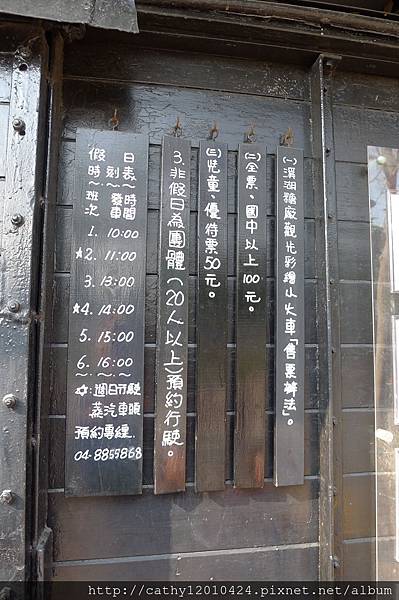 (一)溪湖糖廠觀光彩繪小火車「售票辦法」。
(二)全票、國中以上100元。
(三)兒童、優待票50元。
3.非假日為團體(20人以上)預約行駛。
假日
時刻表
~~~
班次 發車時間
1. 10:00
★2. 11:00
3. 13:00
★4. 14:00
5. 15:00
6. 16:00
~~~
✡:週日行駛
蒸汽車頭
預約專線
04-8855868
http://cathy12010424.pixnet.net/album